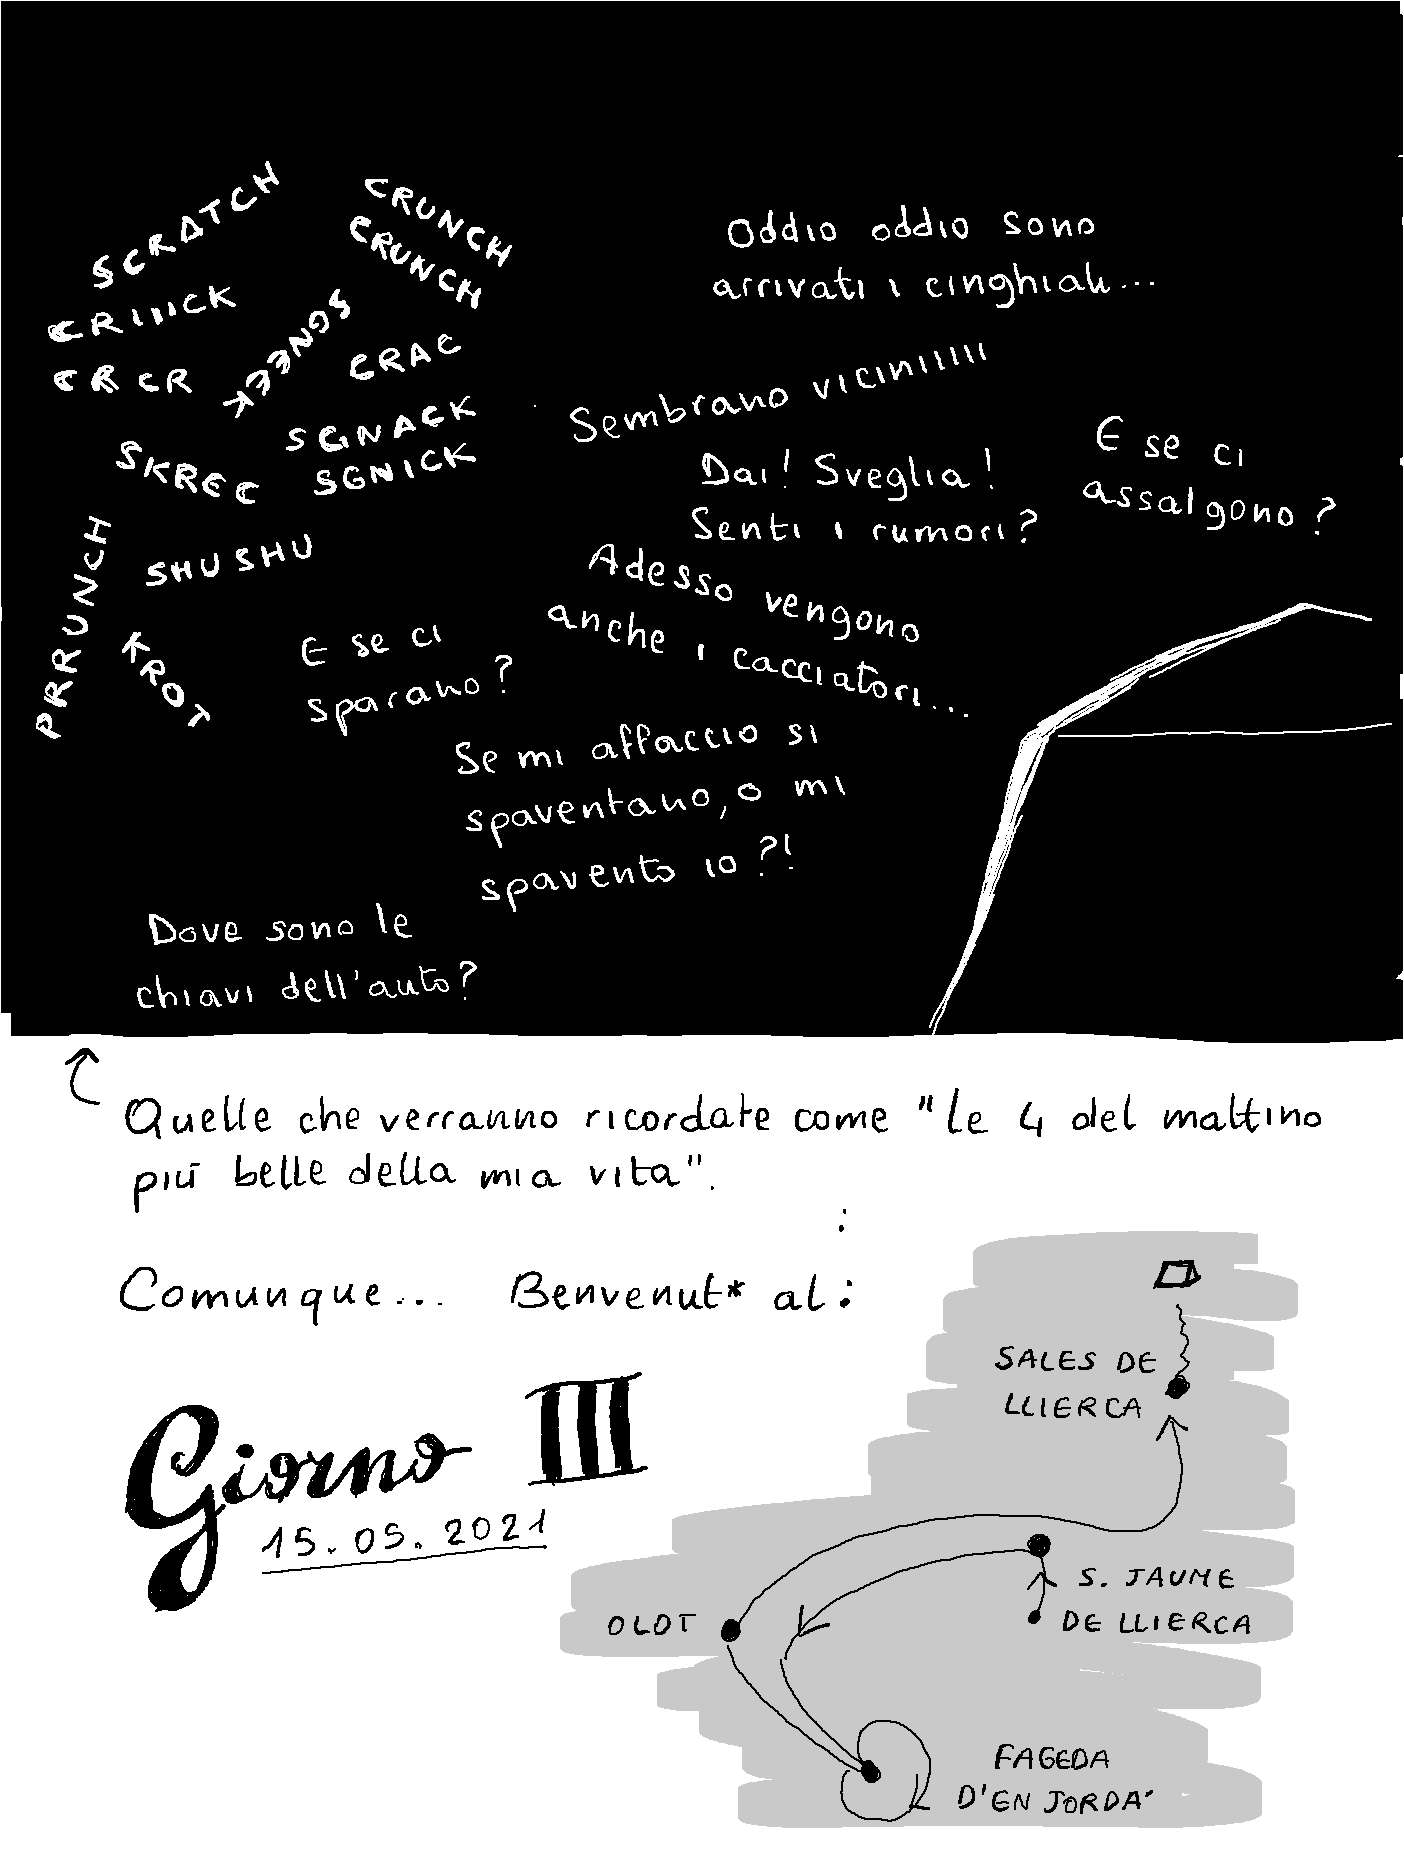 SCRATCH
CRUNCH
CRUNCH
CRIIICK
SGNEEK
CR CR
CRAC
SGNACK
SGNICK
SKREC
SHUSHU
PRRUNCH
KROT
Oddio oddio sono
arrivati i cinghiali...
Sembrano viciniiiiii
Dai! Sveglia!
Senti i rumori?
E se ci
assalgono?
Adesso vengono
anche i cacciatori...
E se ci
sparano?
Se mi affaccio si
spaventano, o mi
spavento io?!
Dove sono le
chiavi dell'auto?
Quelle che verranno ricordate come "le 4 del mattino
più belle della mia vita".
:
Comunque... Benvenut* al:
Giorno III
15.05.2021
SALES DE
LLIERCA
S. JAUME
DE LLIERCA
OLOT
FAGEDA
D'EN JORDA'